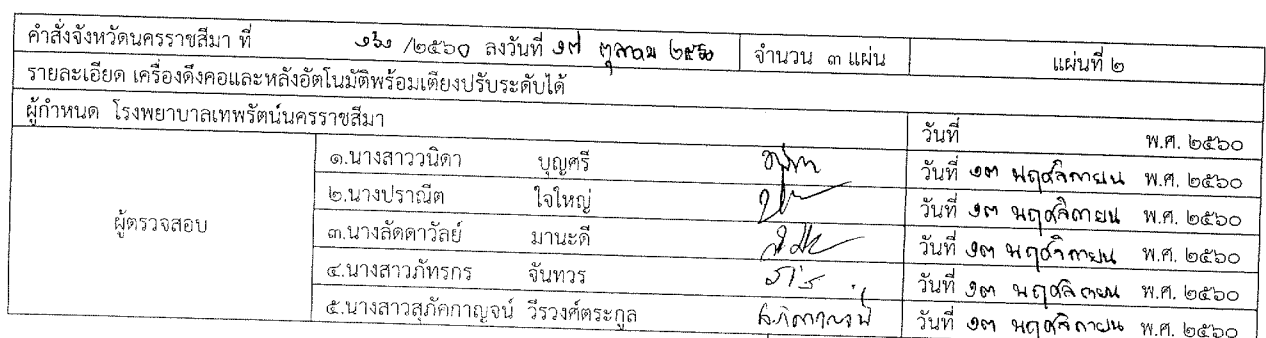 คำสั่งจังหวัดนครราชสีมา ที่ /๒๕๖๐ ลงวันที่ ๑๗ ตุลาคม ๒๕๖๐ จำนวน ๓ แผ่น แผ่นที่ ๒
รายละเอียด เครื่องดึงคอและหลังอัตโนมัติพร้อมเตียงปรับระดับได้
ผู้กำหนด โรงพยาบาลเทพรัตน์นครราชสีมา วันที่ พ.ศ. ๒๕๖๐
๑.นางสาววนิดา บุญศรี วันที่ ๑๓ พฤศจิกายน พ.ศ. ๒๕๖๐
๒.นางปราณีต ใจใหญ่ วันที่ ๑๓ พฤศจิกายน พ.ศ. ๒๕๖๐
ผู้ตรวจสอบ ๓.นางลัดดาวัลย์ มานะดี วันที่ ๑๓ พฤศจิกายน พ.ศ. ๒๕๖๐
๔.นางสาวภัทรกร จันทวร วันที่ ๑๓ พฤศจิกายน พ.ศ. ๒๕๖๐
๕.นางสาวสุภัคกาญจน์ วีรวงศ์ตระกูล วันที่ ๑๓ พฤศจิกายน พ.ศ. ๒๕๖๐